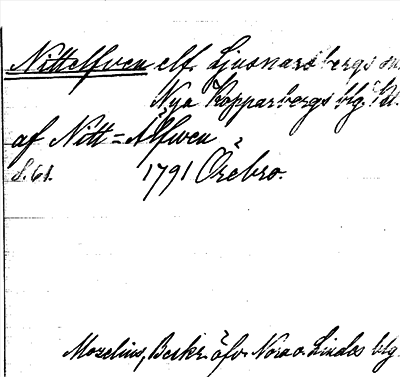 Nittelfven elf. Ljusnarsbergs sn
Nya Kopparbergs blg.
af Nitt-Älfwen,
S. 61. 1791 Örebro.
Mozelius, Beskr. öfv. Nora o. Lindes blg.